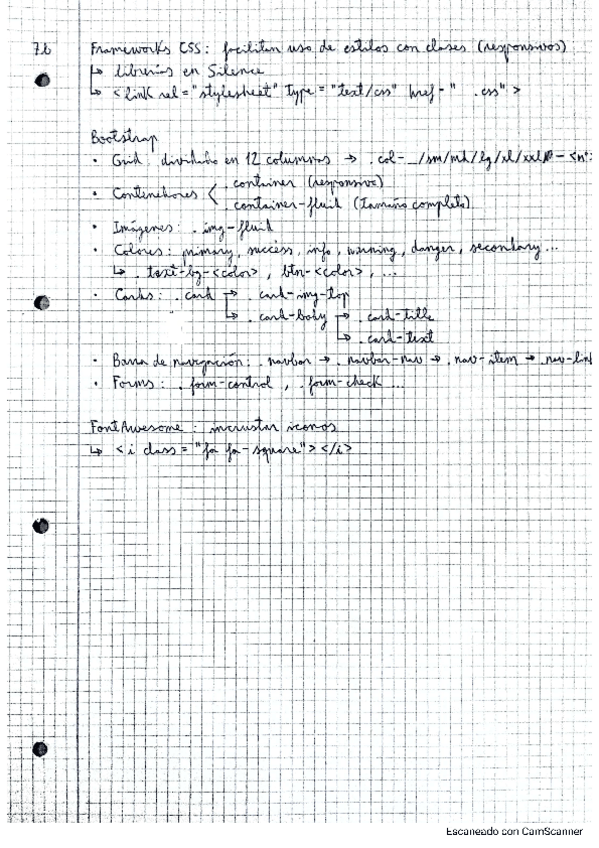 7.6 Frameworks CSS: facilitan uso de estilos con clases (responsivos)
↳ librerías en Silence
↳ <link rel="stylesheet" type="text/css" href="   .css">
Bootstrap
• Grid dividido en 12 columnas → .col-_/sm/md/lg/xl/xxl-<nº
• Contenedores < .container (responsive)
.container-fluid (tamaño completo)
• Imágenes: .img-fluid
• Colores: primary, success, info, warning, danger, secondary...
↳ .text-bg-<color>, btn-<color>, ...
• Cards: .card → .card-img-top
↳ .card-body → .card-title
↳ .card-text
• Barra de navegación: .navbar → .navbar-nav → .nav-item → .nav-link
• Forms: .form-control, .form-check ...
FontAwesome: incrustar iconos
↳ <i class="fa fa-square"></i>
Escaneado con CamScanner